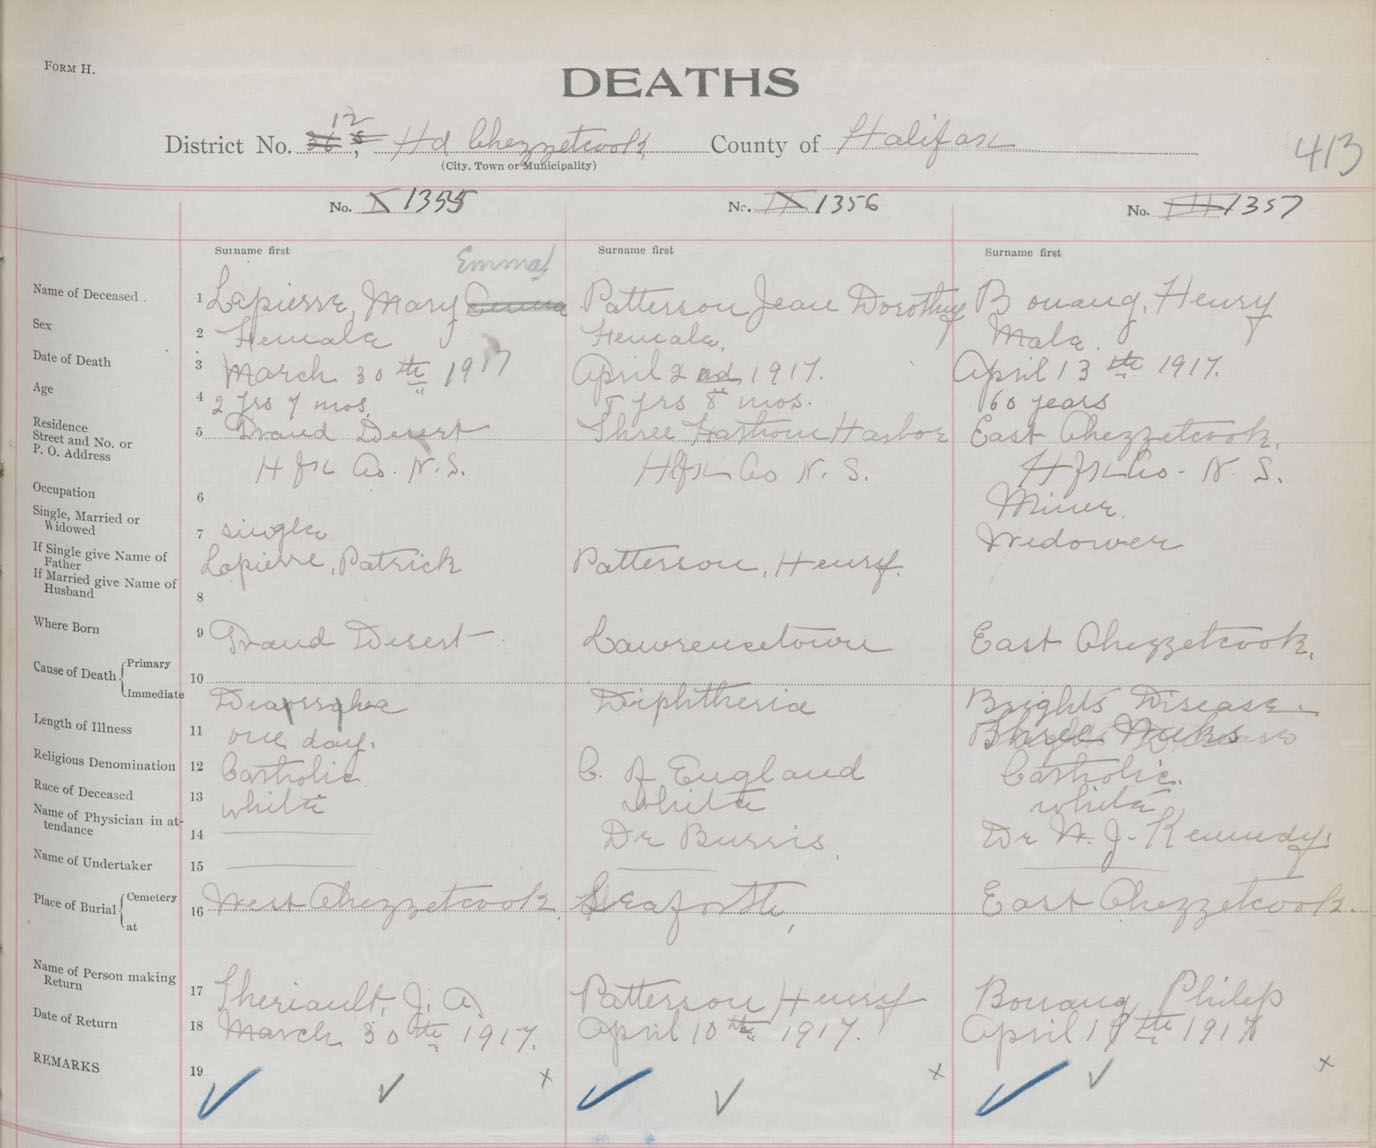 FORM H.
DEATHS
12
District No. 36, 5 Hd Chezzetcook County of Halifax 413
(City, Town or Municipality)
No. X 1355 No. IX 1356 No. 1357
Surname first Surname first Surname first
Emma
Name of Deceased 1 Lapierre, Mary Patterson Jean Dorothy Bonang, Henry
Sex 2 Female Female, Male.
Date of Death 3 March 30th 1917 April 2nd 1917. April 13th 1917.
Age 4 2 yrs 7 mos. 5 yrs 8 mos. 60 years
Residence
Street and No. or 5 Grand Desert Three Fathom Harbor East Chezzetcook,
P. O. Address
Hfx Co. N.S. Hfx Co N. S. Hfx Co - N. S.
Occupation 6 Miner.
Single, Married or
Widowed 7 single Widower
If Single give Name of
Father Lapierre, Patrick Patterson, Henry.
If Married give Name of
Husband 8
Where Born 9 Grand Desert Lawrencetown East Chezzetcook,
Cause of Death Primary 10
Immediate Diarrhea Diphtheria Brights Disease.
Length of Illness 11 one day. Three
Religious Denomination 12 Catholic C. of England Catholic.
Race of Deceased 13 white white white
Name of Physician in attendance 14 Dr Burris Dr N. J. Kennedy.
Name of Undertaker 15
Place of Burial Cemetery 16 West Chezzetcook Seaforth, East Chezzetcook.
at
Name of Person making
Return 17 Theriault, J. A. Patterson Henry Bonang Philip
Date of Return 18 March 30th 1917. April 10th 1917. April 17th 1917
REMARKS 19